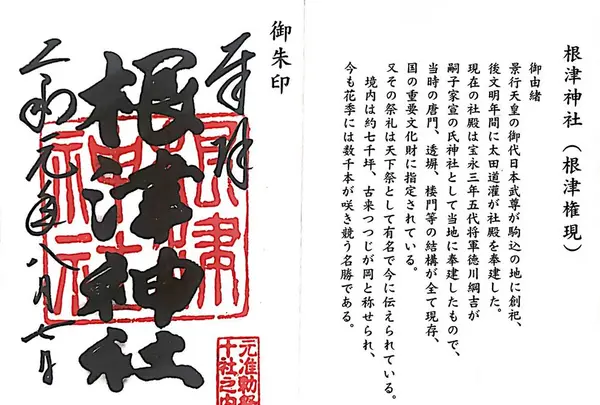 根津神社（根津権現）
御由緒
景行天皇の御代日本武尊が駒込の地に創祀、
後文明年間に太田道灌が社殿を奉建した。
現在の社殿は宝永三年五代将軍徳川綱吉が
嗣子家宣の氏神社として当地に奉建したもので、
当時の唐門、透塀、楼門等の結構が全て現存、
国の重要文化財に指定されている。
又その祭礼は天下祭として有名で今に伝えられている。
境内は約七千坪、古来つつじが岡と称せられ、
今も花季には数千本が咲き競う名勝である。
御朱印
奉拝
根津神社
令和元年八月七日
元准勅祭
十社之内